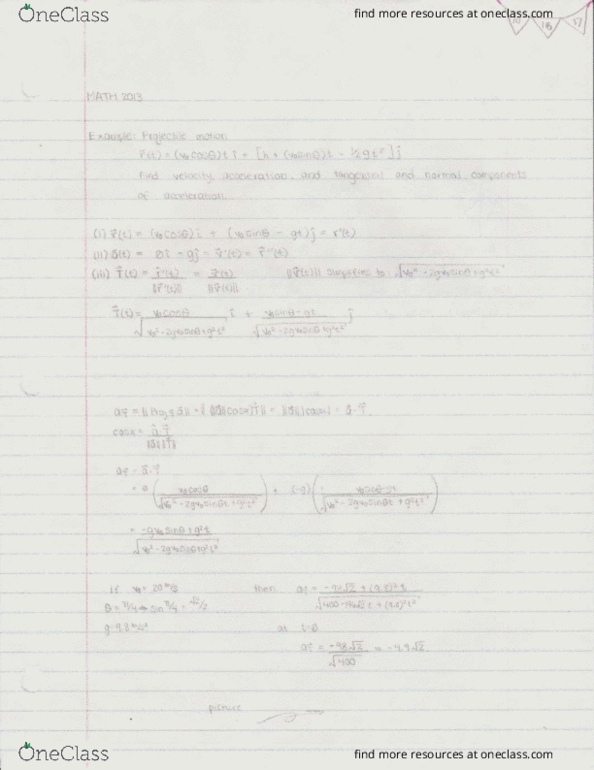 OneClass
find more resources at oneclass.com
18 17
MATH 2013
Example: Projectile motion
r⃗(t) = (v₀cosθ)t î + [h + (v₀sinθ)t - ½gt²] ĵ
Find velocity, acceleration, and tangential and normal components
of acceleration.
(i) v⃗(t) = (v₀cosθ) î + (v₀sinθ - gt) ĵ = r'(t)
(ii) a⃗(t) = 0î - gĵ = v⃗'(t) = r⃗''(t)
(iii) T⃗(t) = r⃗'(t)/||r⃗'(t)|| = v⃗(t)/||v⃗(t)|| ||v⃗(t)|| simplifies to √(v₀² - 2gv₀sinθt + g²t²)
T⃗(t) = v₀cosθ/√(v₀² - 2gv₀sinθt + g²t²) î + (v₀sinθ - gt)/√(v₀² - 2gv₀sinθt + g²t²) ĵ
a_T = ||Proj_T a⃗|| = || ||a⃗||(cosα)T⃗ || = ||a⃗|| |cosα| = a⃗·T⃗
cosα = a⃗·T⃗/||a⃗|| ||T⃗||
a_T = a⃗·T⃗
= 0(v₀cosθ/√(v₀² - 2gv₀sinθt + g²t²)) + (-g)((v₀sinθ - gt)/√(v₀² - 2gv₀sinθt + g²t²))
= (-gv₀sinθ + g²t)/√(v₀² - 2gv₀sinθt + g²t²)
if v₀ = 20 m/s then a_T = (-98√2 + (9.8)²t)/√(400 - 196√2 t + (9.8)²t²)
θ = π/4 → sin π/4 = √2/2
g = 9.8 m/s² at t=0
a_T = -98√2/√400 = -4.9√2
picture
OneClass
find more resources at oneclass.com